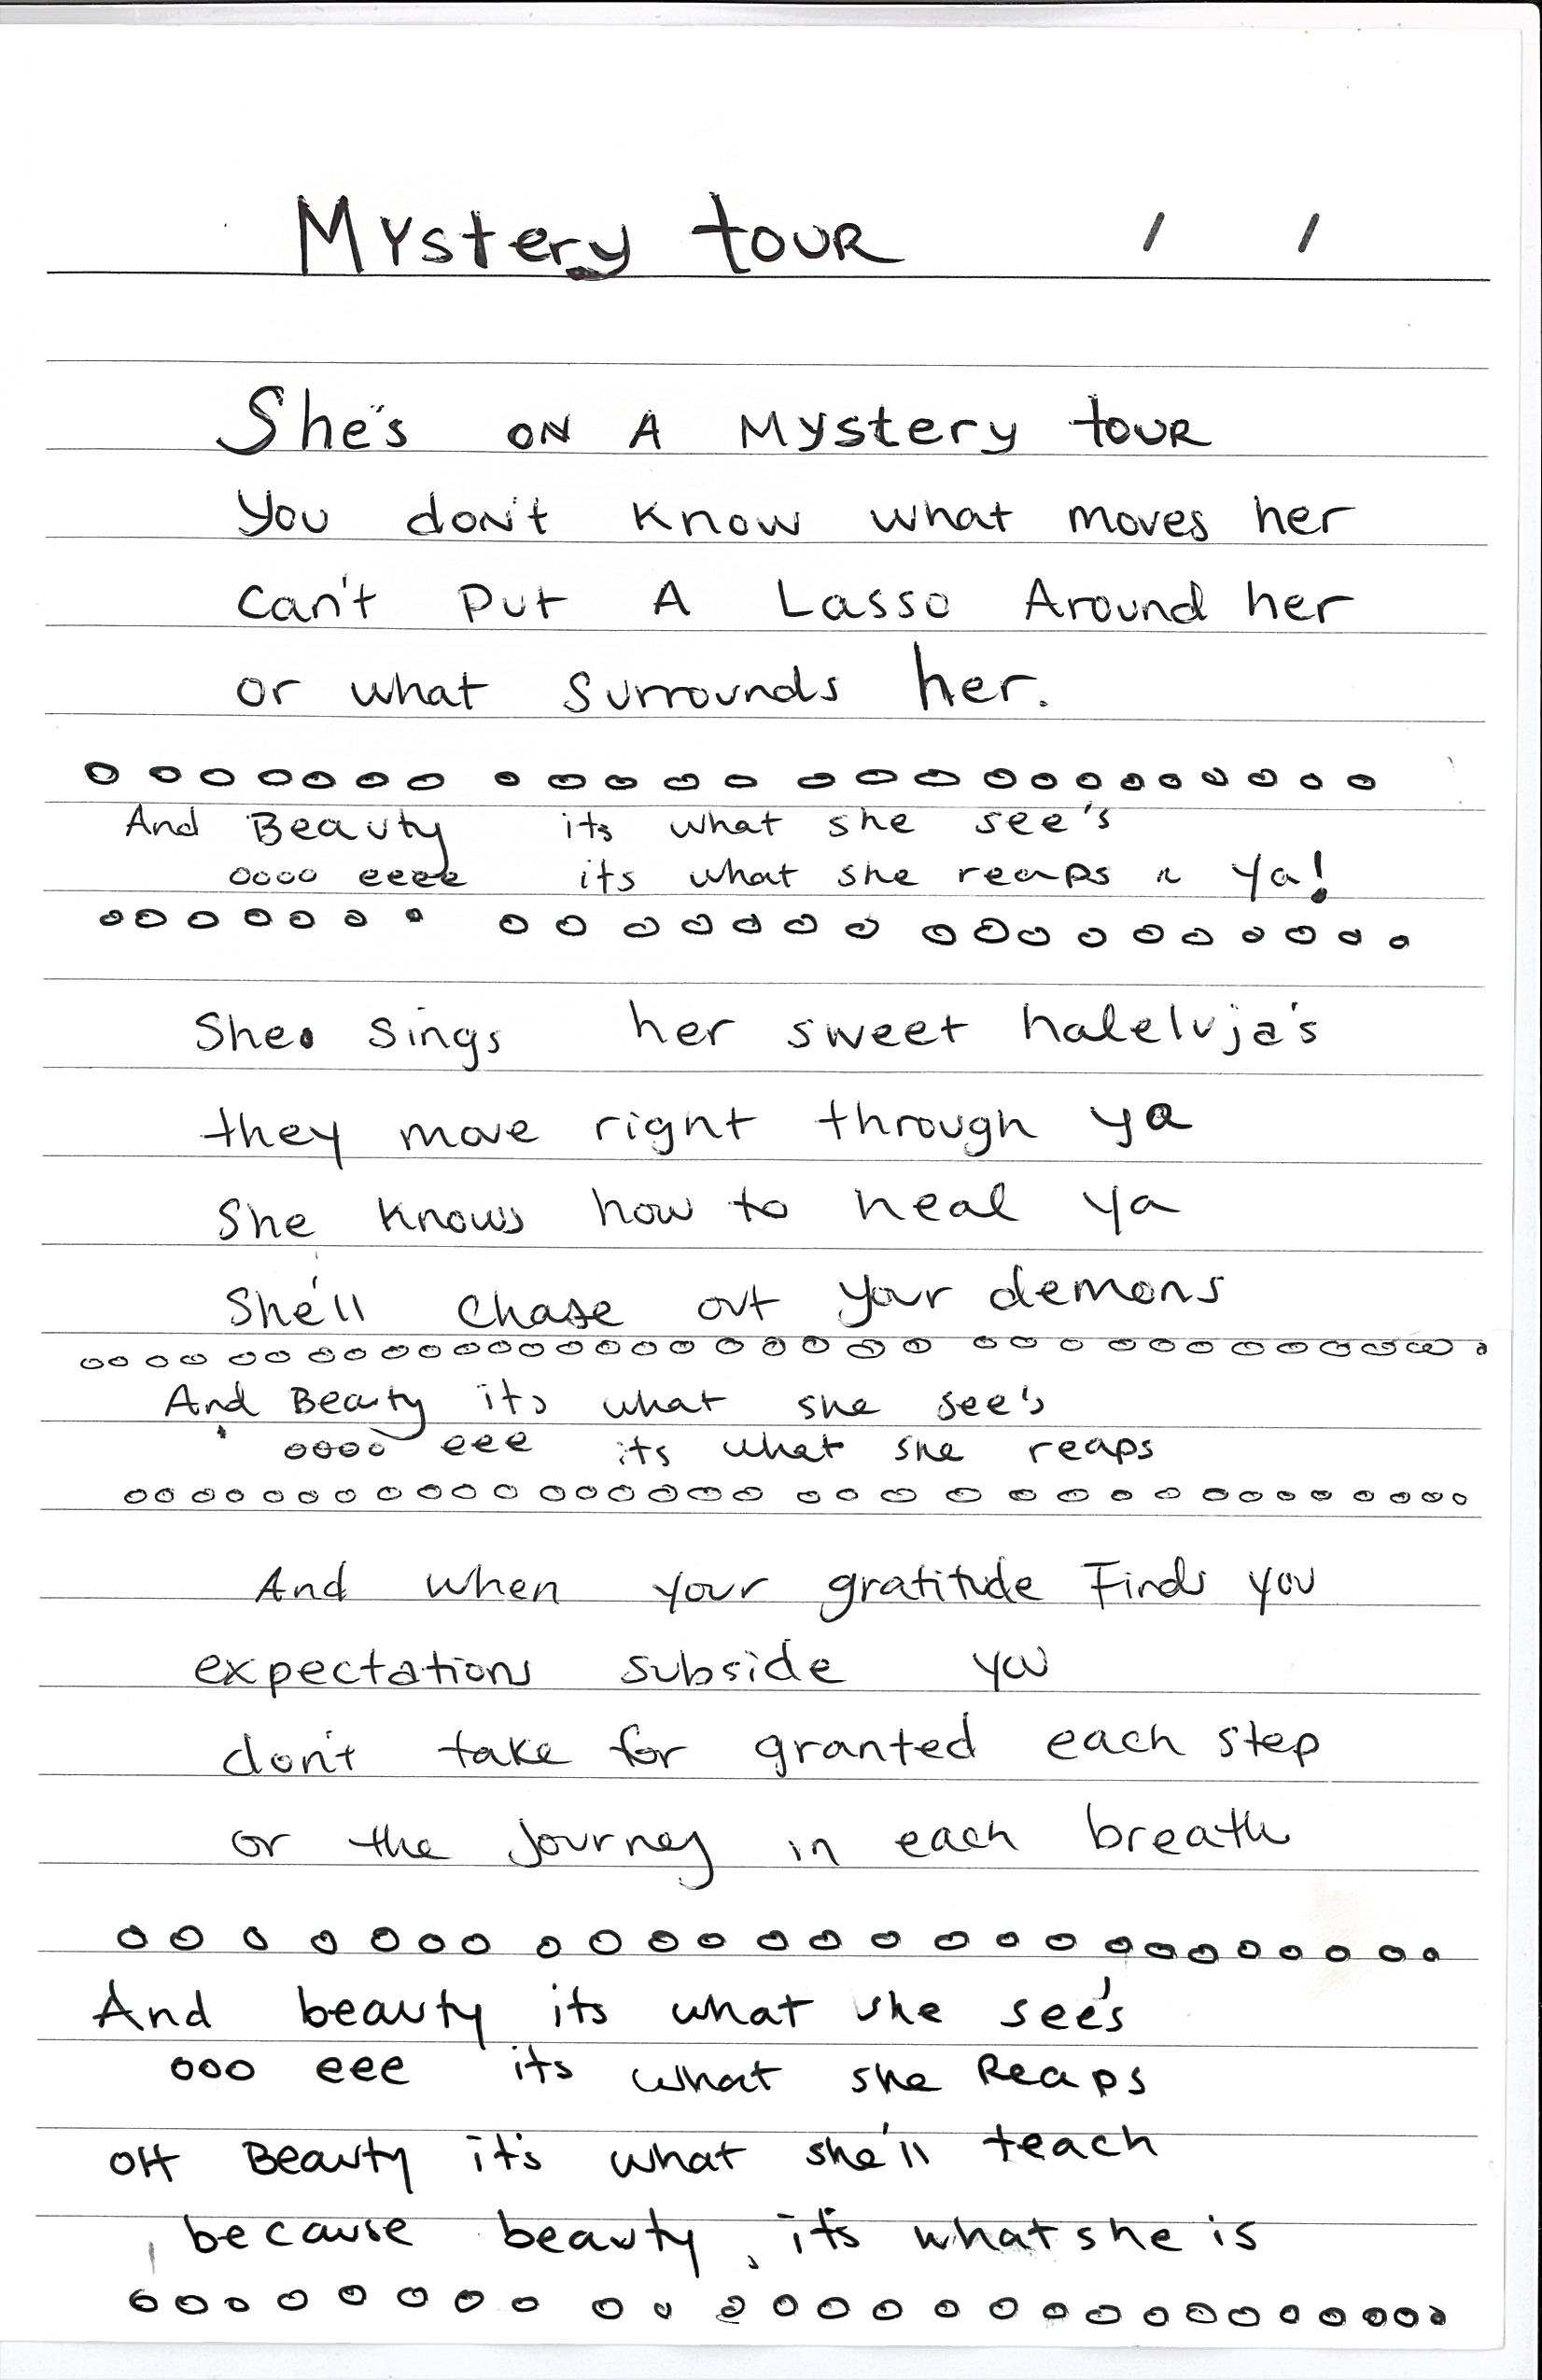 Mystery tour / /
She's ON A Mystery tour
you don't know what moves her
can't put A Lasso Around her
or what surrounds her.
And Beauty its what she see's
oooo eeee its what she reaps n ya!
She sings her sweet haleluja's
they move right through ya
She knows how to heal ya
She'll chase out your demons
And Beauty its what she see's
oooo eee its what she reaps
And when your gratitude Finds you
expectations subside you
don't take for granted each step
or the journey in each breath
And beauty its what she see's
ooo eee its what she Reaps
OH Beauty it's what she'll teach
because beauty, it's what she is